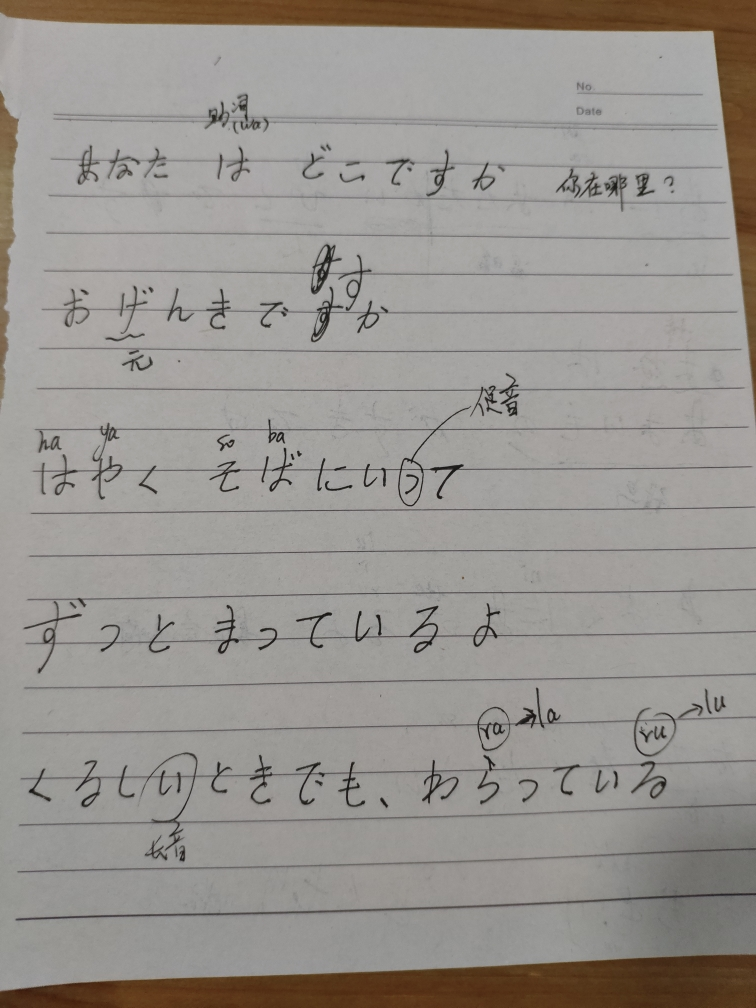 No.
Date
助词
(wa)
あなた は どこですか 你在哪里？
す
おげんきでか
元
促音
ha ya so ba
はやく そばにいって
ずっと まっているよ
ra→la ru→lu
くるしいときでも、わらっている
长音